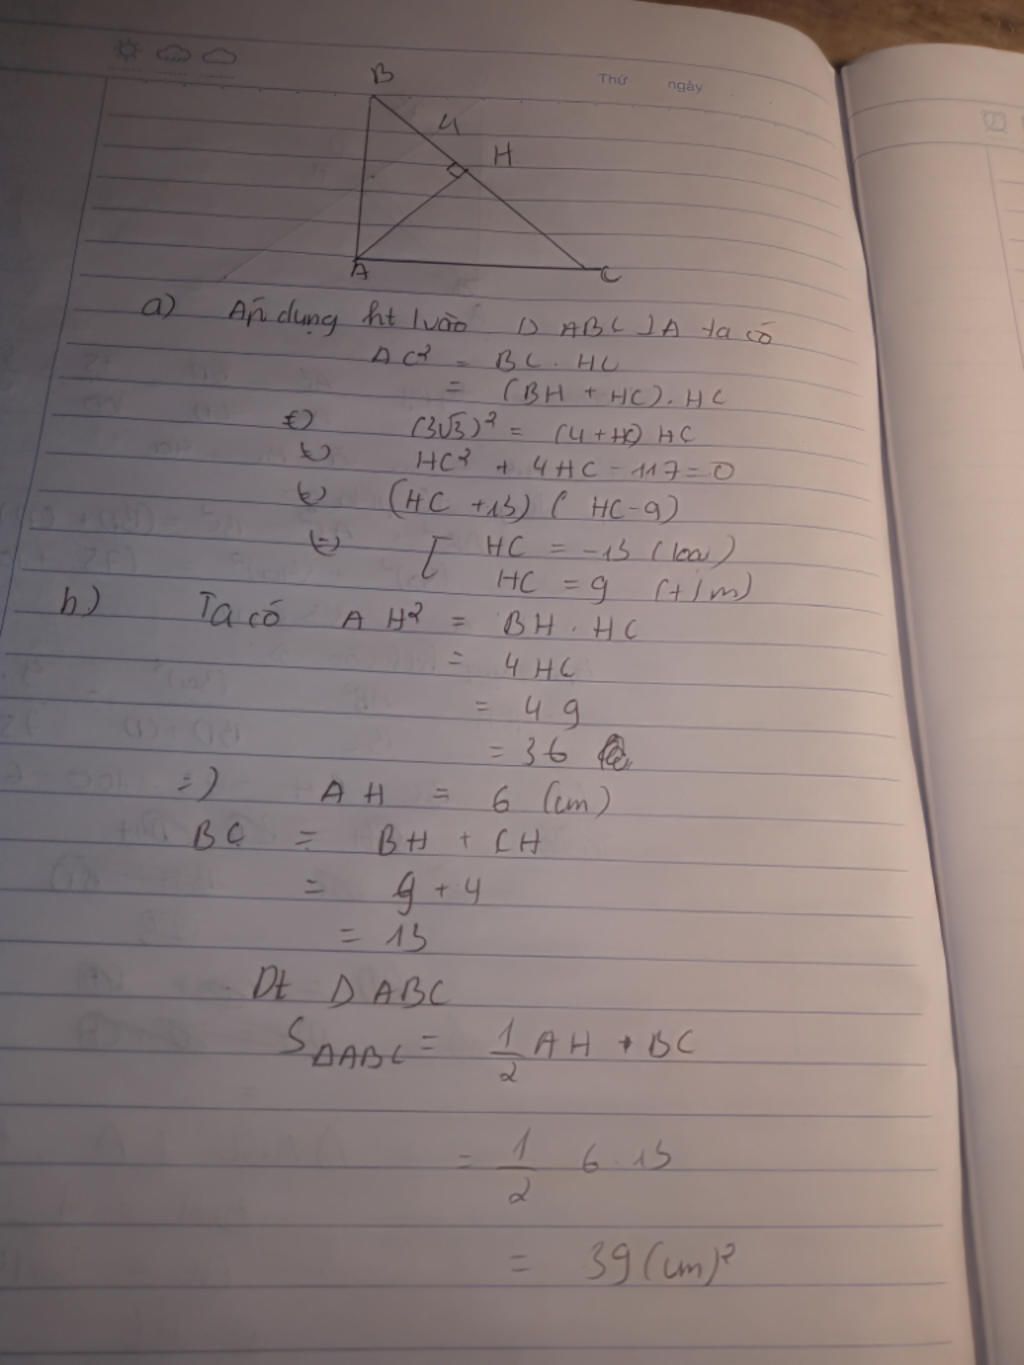 Thứ ngày
B
4
H
A
C
a) Áp dụng ht l vào Δ ABC ⊥ A ta có
AC² = BC . HC
= (BH + HC). HC
(=) (3√3)² = (4+HC) HC
(=) HC² + 4HC - 117 = 0
(=) (HC +13) ( HC-9)
(=) [ HC = -13 (loại)
HC = 9 (t/m)
b) Ta có AH² = BH . HC
= 4 HC
= 4 9
= 36
=) AH = 6 (cm)
BC = BH + CH
= 9 + 4
= 13
Dt Δ ABC
SΔABC = 1/2 AH . BC
= 1/2 6 . 13
= 39 (cm)²